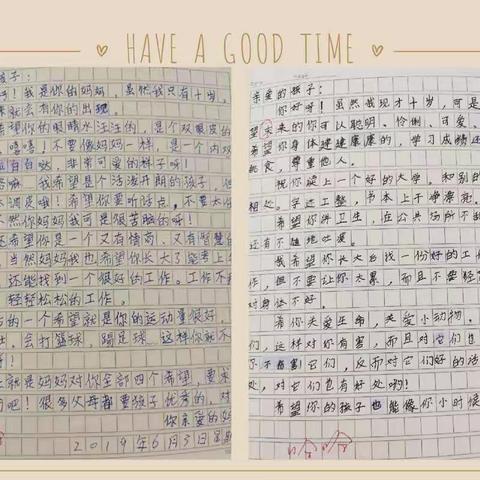 HAVE A GOOD TIME
孩子:
!我是你的妈妈,虽然我只有十岁,
就会有你的出现。
希望你的眼睛水汪汪的,是个双眼皮的
,嘻嘻!不要像妈妈一样,是一个内双
白白哒,非常可爱的样子呀!
嘛,我希望是个活泼开朗的孩子,但
调皮哦!希望你要听话点,不要太
不然你妈妈我可是很苦脑的呀!
还希望你是一个又有情商、又有智慧的
,当然妈妈我也希望你长大了能考上
,还能找到一个很好的工作。工作不
轻轻松松的工作。
后的一个希望就是你的运动量很好,
,会打篮球,踢足球,这样你就不
!
上就是妈妈对你全部四个希望,要求
吧!很多父母都要孩子优秀的,对
你亲爱的
2019年6月3日星期
亲爱的孩子:
你好呀!虽然我现才十岁,可是
望未来的你可以聪明、伶俐、可爱。
希望你身体健健康康的,学习成绩还
挑食,尊重他人。
祝你读上一个好的大学,和别的
相处,字迹工整,书本上干净漂亮。
希望你讲卫生,在公共场所不
还有不随地吐痰。
我希望你长大后找一份好的工
作,但不要让你太累,而且不要
对身体不好。
希你关爱生命,关爱小动物。
们,这样对你有害,而且对它们也
你不伤害它们,反而对它们好的话
处,对它们也有好处哟!
希望你的孩子也能像你小时候